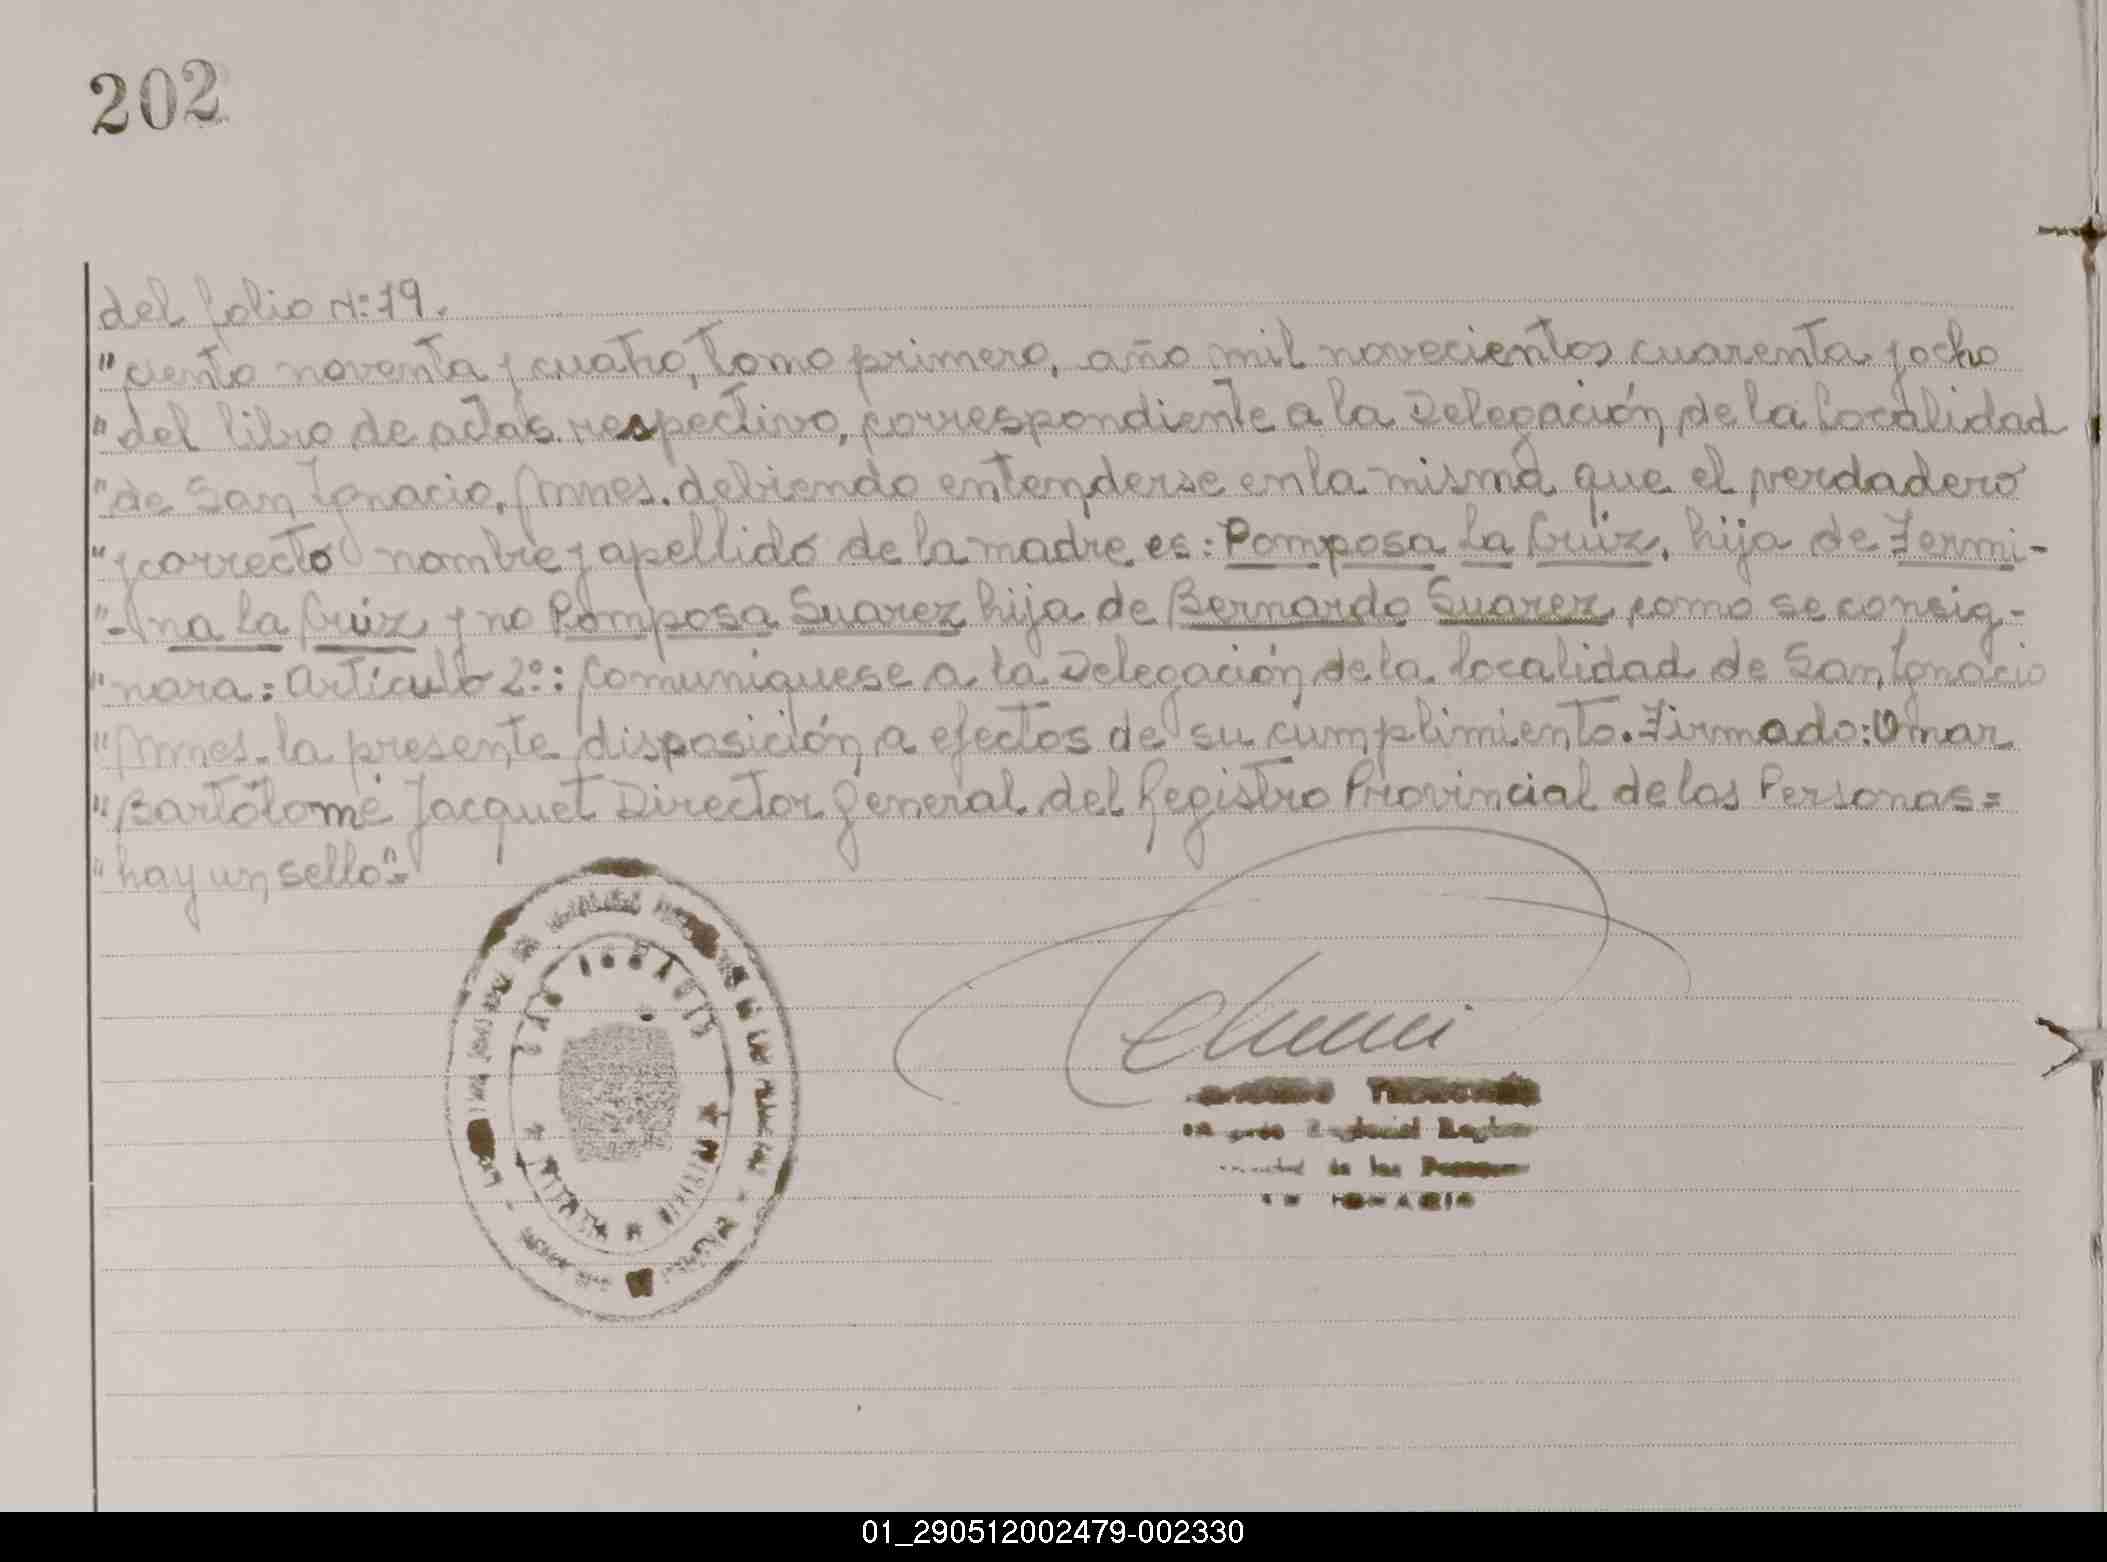 202
del folio N: 19.
"ciento noventa y cuatro, tomo primero, año mil novecientos cuarenta y ocho
"del libro de actas respectivo, correspondiente a la Delegación de la localidad
"de San Ignacio, Mnes. debiendo entenderse en la misma que el verdadero
"y correcto nombre y apellido de la madre es: Pomposa la Cruz, hija de Fermi-
"-na la Cruz y no Pomposa Suarez hija de Bernardo Suarez como se consig-
"nara: Artículo 2º: Comuniquese a la Delegación de la localidad de San Ignacio
"Mnes. la presente disposición a efectos de su cumplimiento. Firmado: Omar
"Bartolomé Jacquet Director General del Registro Provincial de las Personas=
"hay un sello"=
de las
01_290512002479-002330